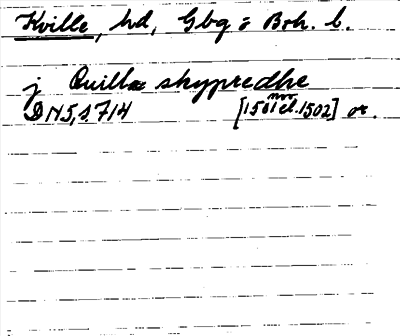 Kville, hd, Gbg o Boh. l.
j Quillæ skypredhe
DN5,s.714 [1501 el. 1502] or.